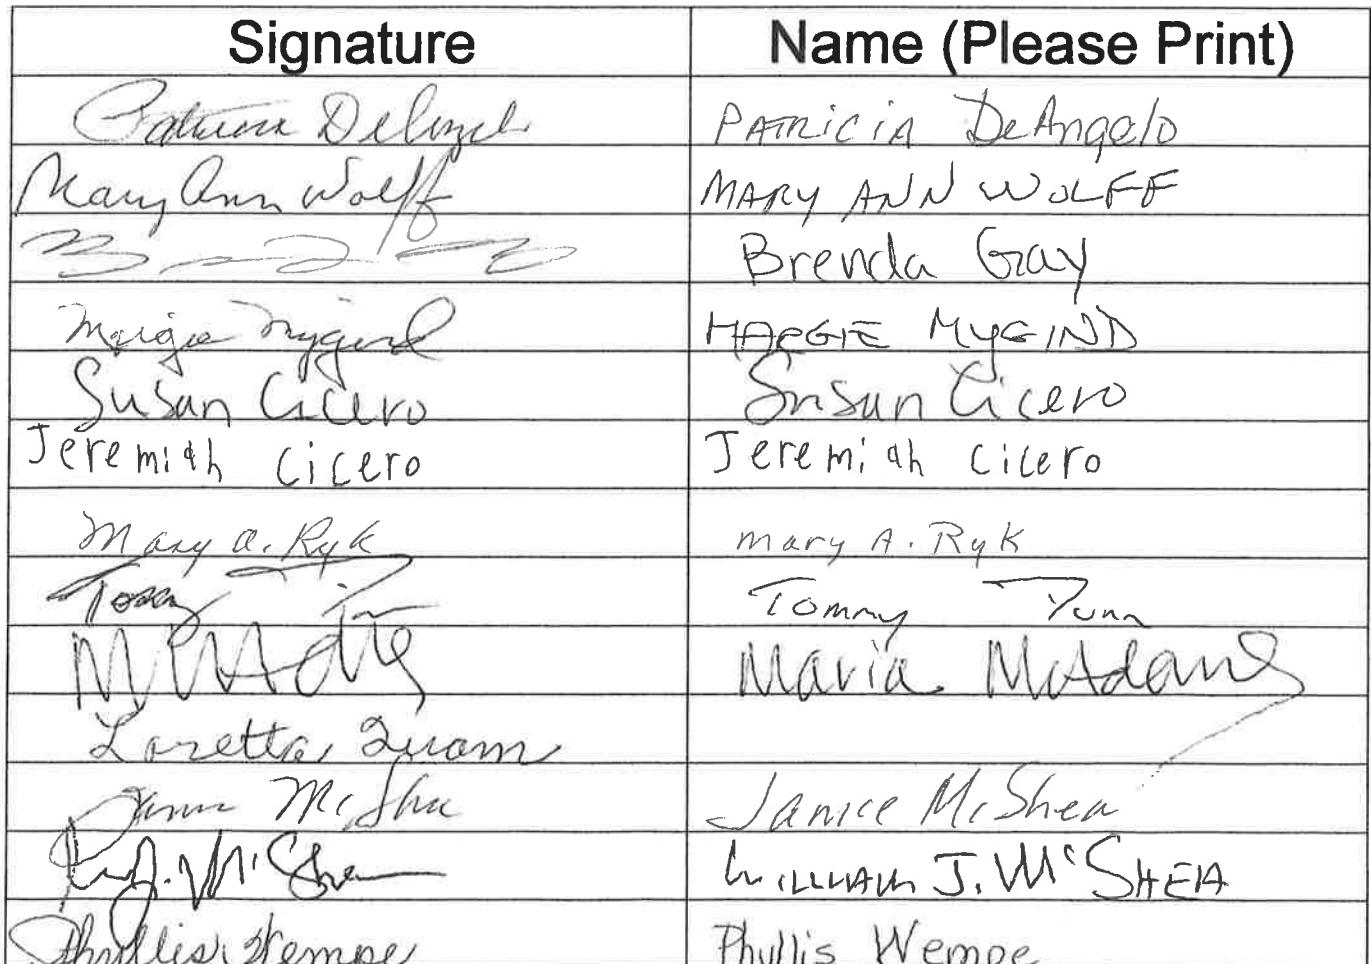 Signature Name (Please Print)
Patricia DeAngelo PATRICIA DeAngelo
Mary Ann Wolff MARY ANN WOLFF
Brenda Gray
Margie Mygind MARGIE MYGIND
Susan Cicero Susan Cicero
Jeremiah Cicero Jeremiah Cicero
Mary A. Ryk Mary A. Ryk
Tommy Tommy Dunn
Maria McAdams
Loretta Quam
Janice McShea Janice McShea
Wm J. McShea WILLIAM J. McSHEA
Phyllis Wempe Phyllis Wempe